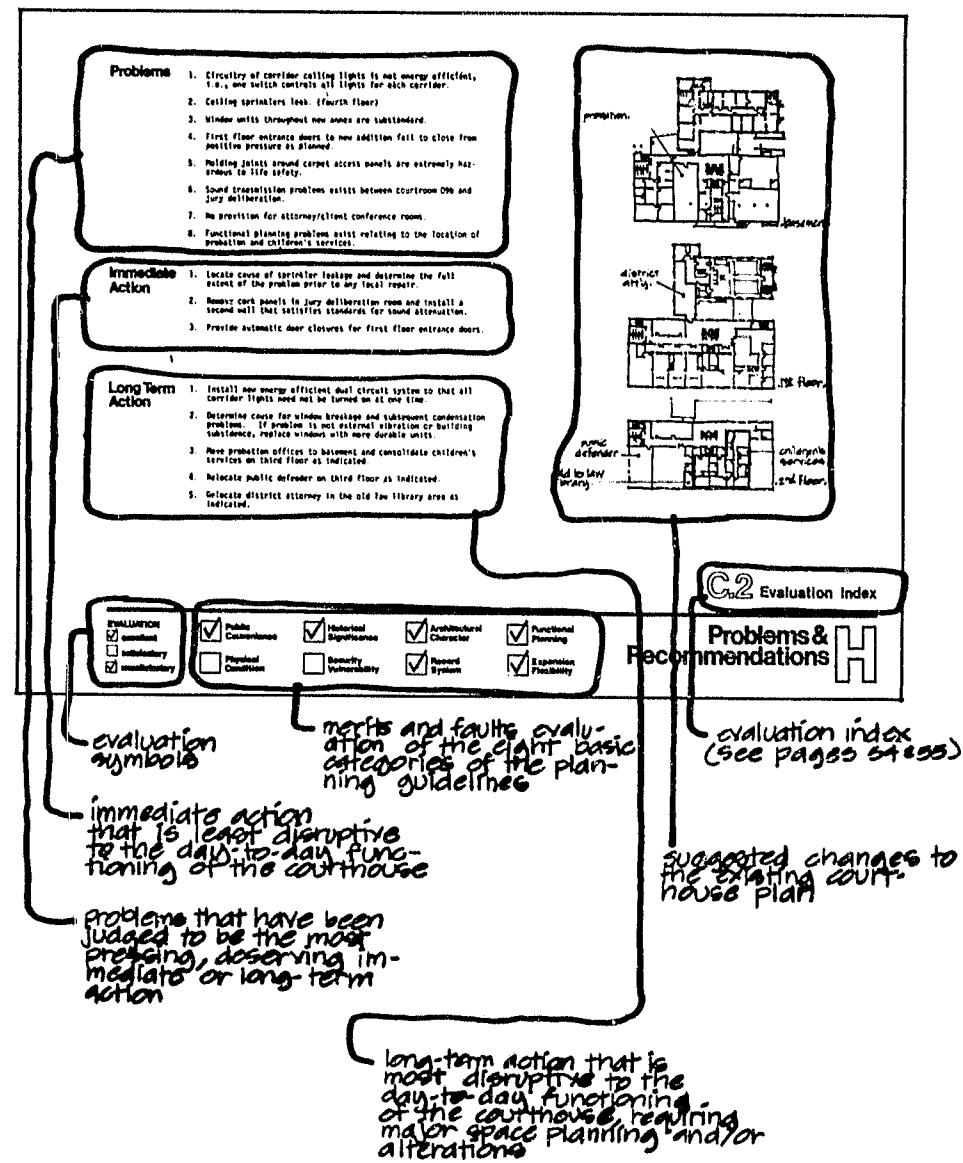 Problems
1. Circuitry of corridor ceiling lights is not energy efficient,
i.e., one switch controls all lights for each corridor.
2. Ceiling sprinklers leak. (fourth floor)
3. Window units throughout new annex are substandard.
4. First floor entrance doors to new addition fail to close from
positive pressure as planned.
5. Molding joints around carpet access panels are extremely haz-
ardous to life safety.
6. Sound transmission problems exists between courtroom and
jury deliberation.
7. No provision for attorney/client conference rooms.
8. Functional planning problems exist relating to the location of
probation and children's services.
Immediate
Action
1. Locate cause of sprinkler leakage and determine the full
extent of the problem prior to any local repair.
2. Remove cork panels in jury deliberation room and install a
second wall that satisfies standards for sound attenuation.
3. Provide automatic door closures for first floor entrance doors.
Long Term
Action
1. Install new energy efficient dual circuit system so that all
corridor lights need not be turned on at one time.
2. Determine cause for window breakage and subsequent condensation
problems. If problem is not external vibration or building
subsidence, replace windows with more durable units.
3. Move probation offices to basement and consolidate children's
services on third floor as indicated.
4. Relocate public defender on third floor as indicated.
5. Relocate district attorney in the old law library area as
indicated.
probation
basement
district
atty.
1st floor.
public
defender
children's
services
old to law
library
2nd floor.
C.2 Evaluation Index
EVALUATION
excellent
satisfactory
unsatisfactory
Public
Convenience
Historical
Significance
Architectural
Character
Functional
Planning
Physical
Condition
Security
Vulnerability
Record
System
Expansion
Flexibility
Problems &
Recommendations
H
evaluation
symbols
merits and faults evalu-
ation of the eight basic
categories of the plan-
ning guidelines
evaluation index
(see pages 54 & 55)
immediate action
that is least disruptive
to the day-to-day func-
tioning of the courthouse
suggested changes to
the existing court-
house plan
problems that have been
judged to be the most
pressing, deserving im-
mediate or long-term
action
long-term action that is
most disruptive to the
day-to-day functioning
of the courthouse, requiring
major space planning and/or
alterations